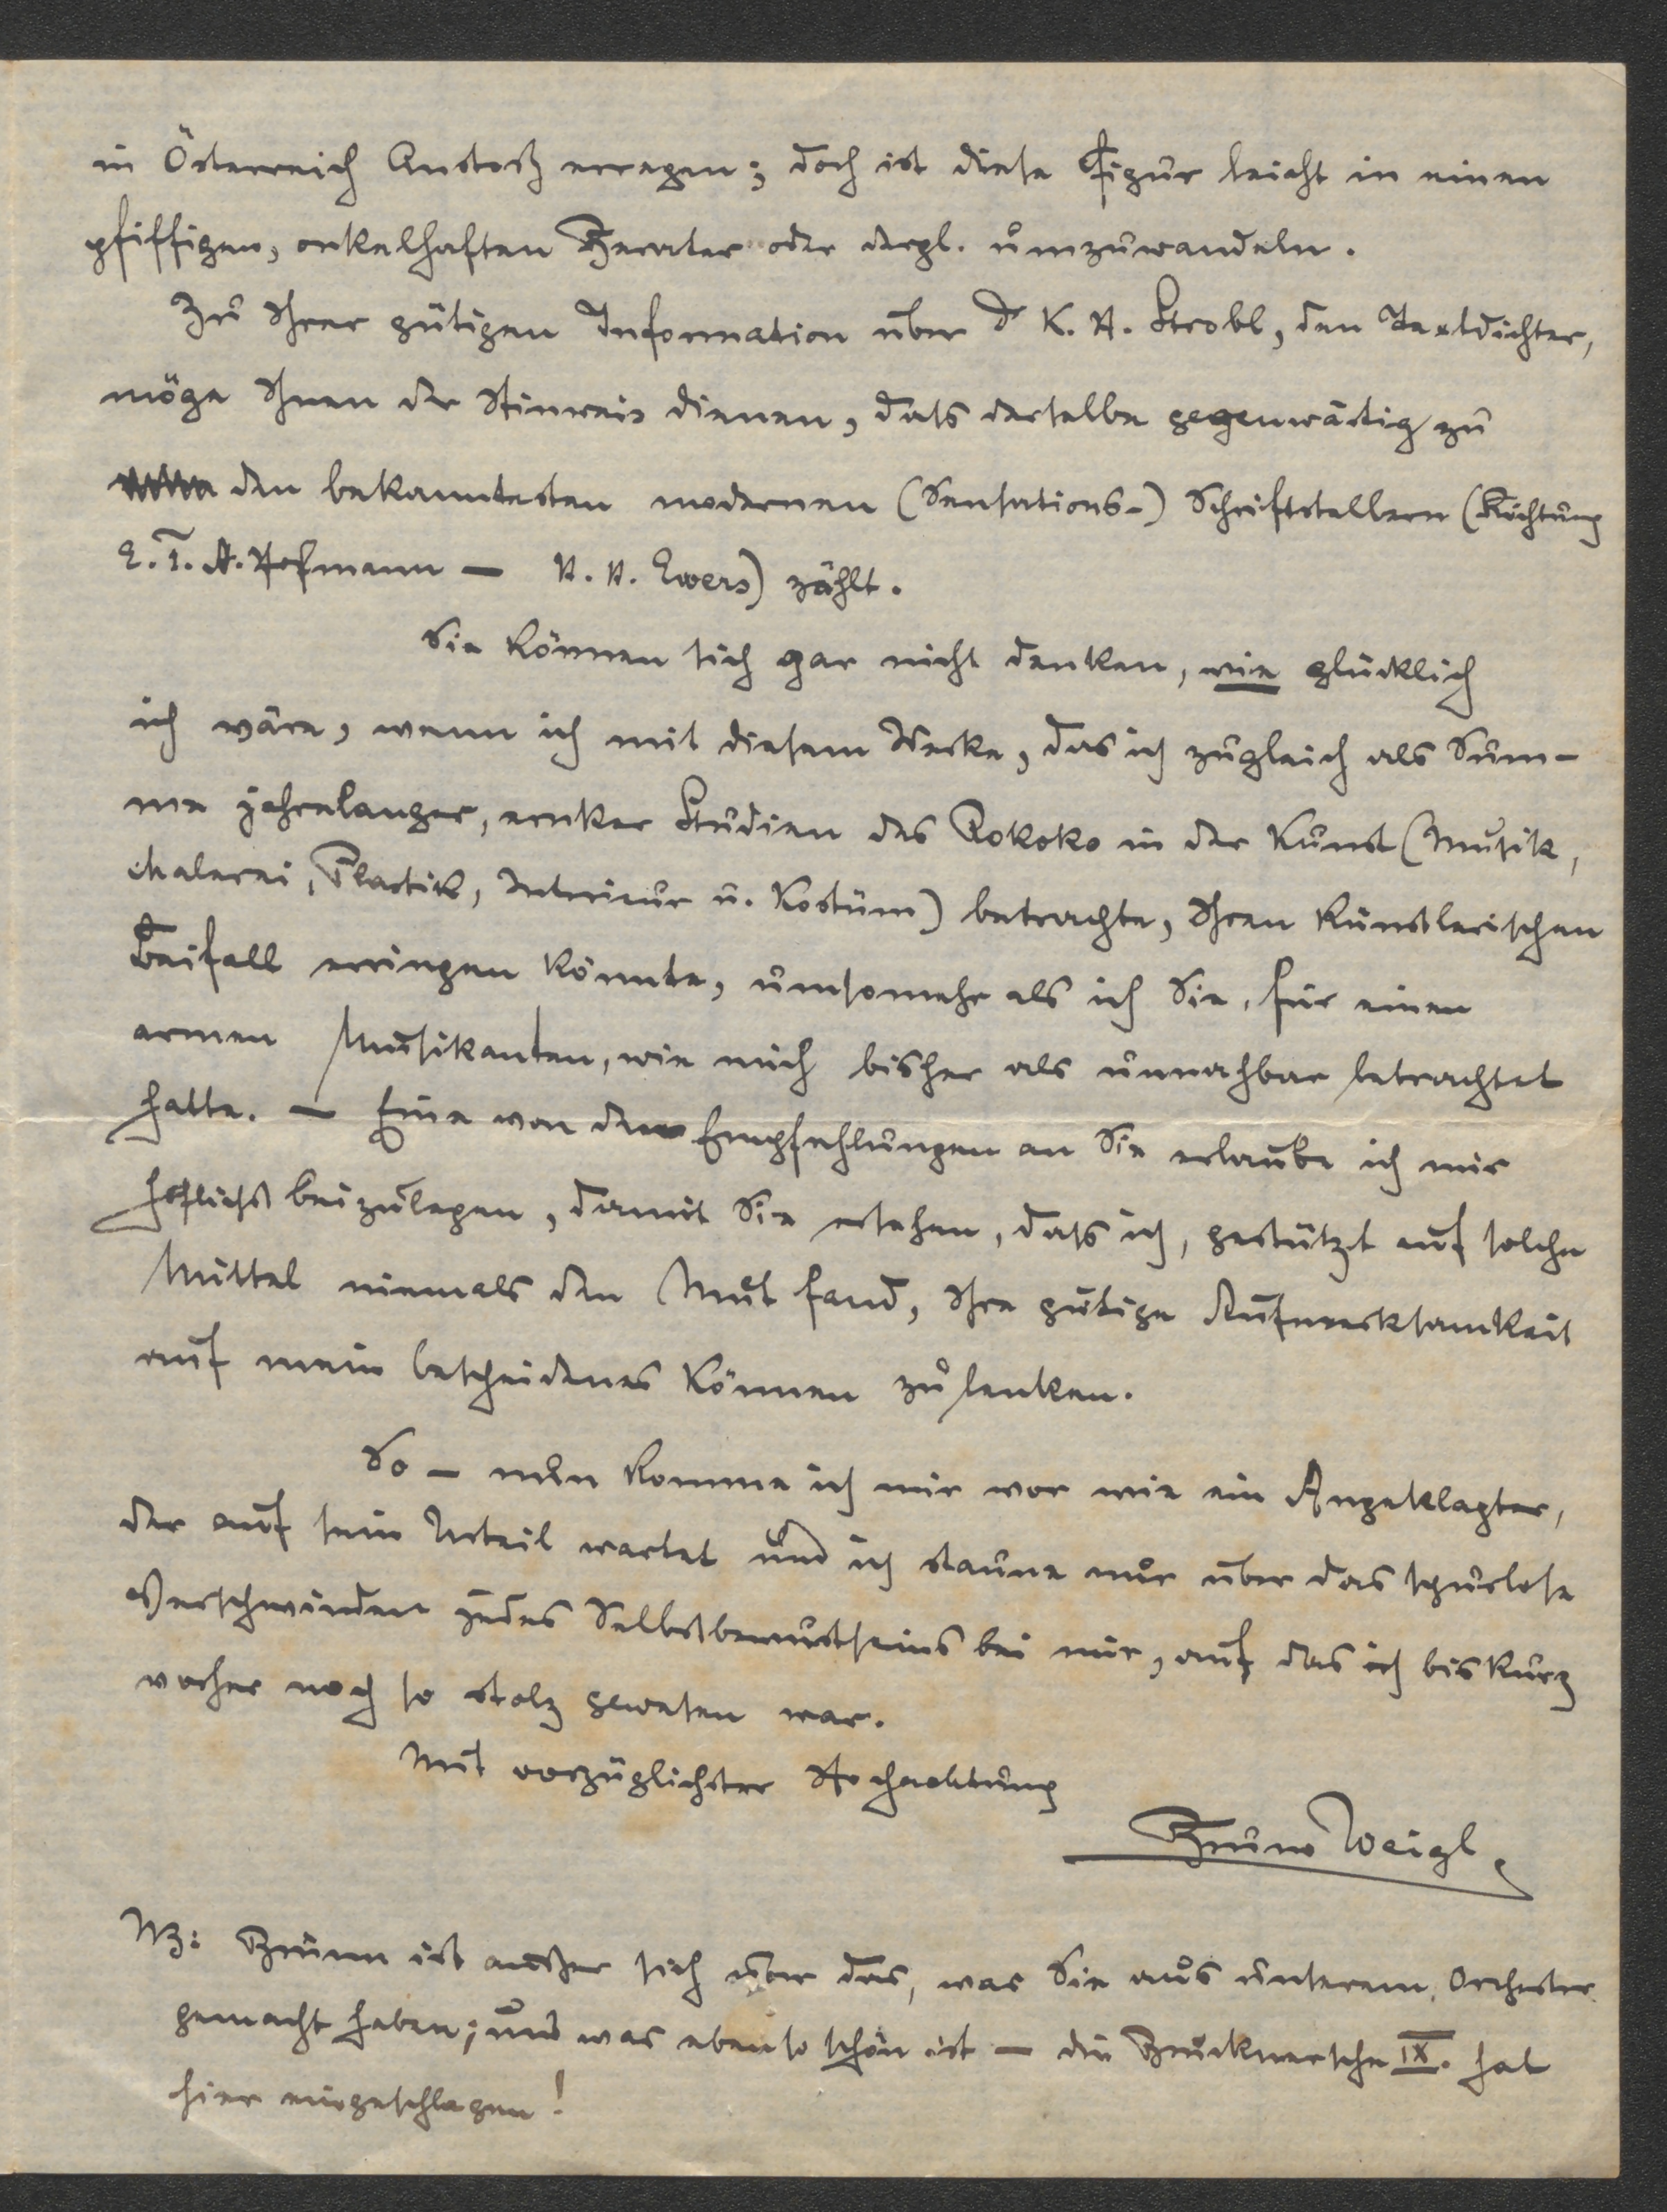 in Österreich Anstoß erregen; doch ist diese Figur leicht in einen
pfiffigen, onkelhaften Berater oder dergl. umzuwandeln.
Zu Ihrer gütigen Information über Dr K. H. Strobl, den Textdichter,
möge Ihnen der Hinweis dienen, dass derselbe gegenwärtig zu
den bekanntesten modernen (Sensations-) Schriftstellern (Richtung
E. T. A. Hofmann — H. H. Ewers) zählt.
Sie können sich gar nicht denken, wie glücklich
ich wäre, wenn ich mit diesem Werke, das ich zugleich als Sum-
me jahrelanger, ernster Studien des Rokoko in der Kunst (Musik,
Malerei, Plastik, Interieur u. Kostüm) betrachte, Ihren künstlerischen
Beifall erringen könnte, umsomehr als ich Sie, für einen
armen Musikanten, wie mich bisher als unnahbar betrachtet
hatte. — Eine von den Empfehlungen an Sie erlaube ich mir
höflichst beizulegen, damit Sie ersehen, dass ich, gestützt auf solche
Mittel niemals den Mut fand, Ihre gütige Aufmerksamkeit
auf mein bescheidenes Können zu lenken.
So — nun komme ich mir vor wie ein Angeklagter,
der auf sein Urteil wartet und ich staune nur über das spurlose
Verschwinden jedes Selbstbewusstseins bei mir, auf das ich bis kurz
vorher noch so stolz gewesen war.
Mit vorzüglichster Hochachtung
Bruno Weigl.
NB: Brünn ist außer sich über das, was Sie aus unserem Orchester
gemacht haben; und was ebenso schön ist — die Brucknersche IX. hat
hier eingeschlagen!